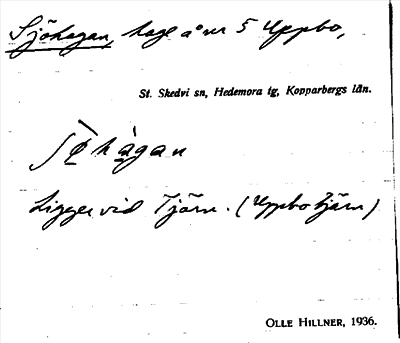 Sjöhagan, hage å nr 5 Uppbo,
St. Skedvi sn, Hedemora tg, Kopparbergs län.
hagan
Ligger vid Tjärn. (Uppbo tjärn)
OLLE HILLNER, 1936.